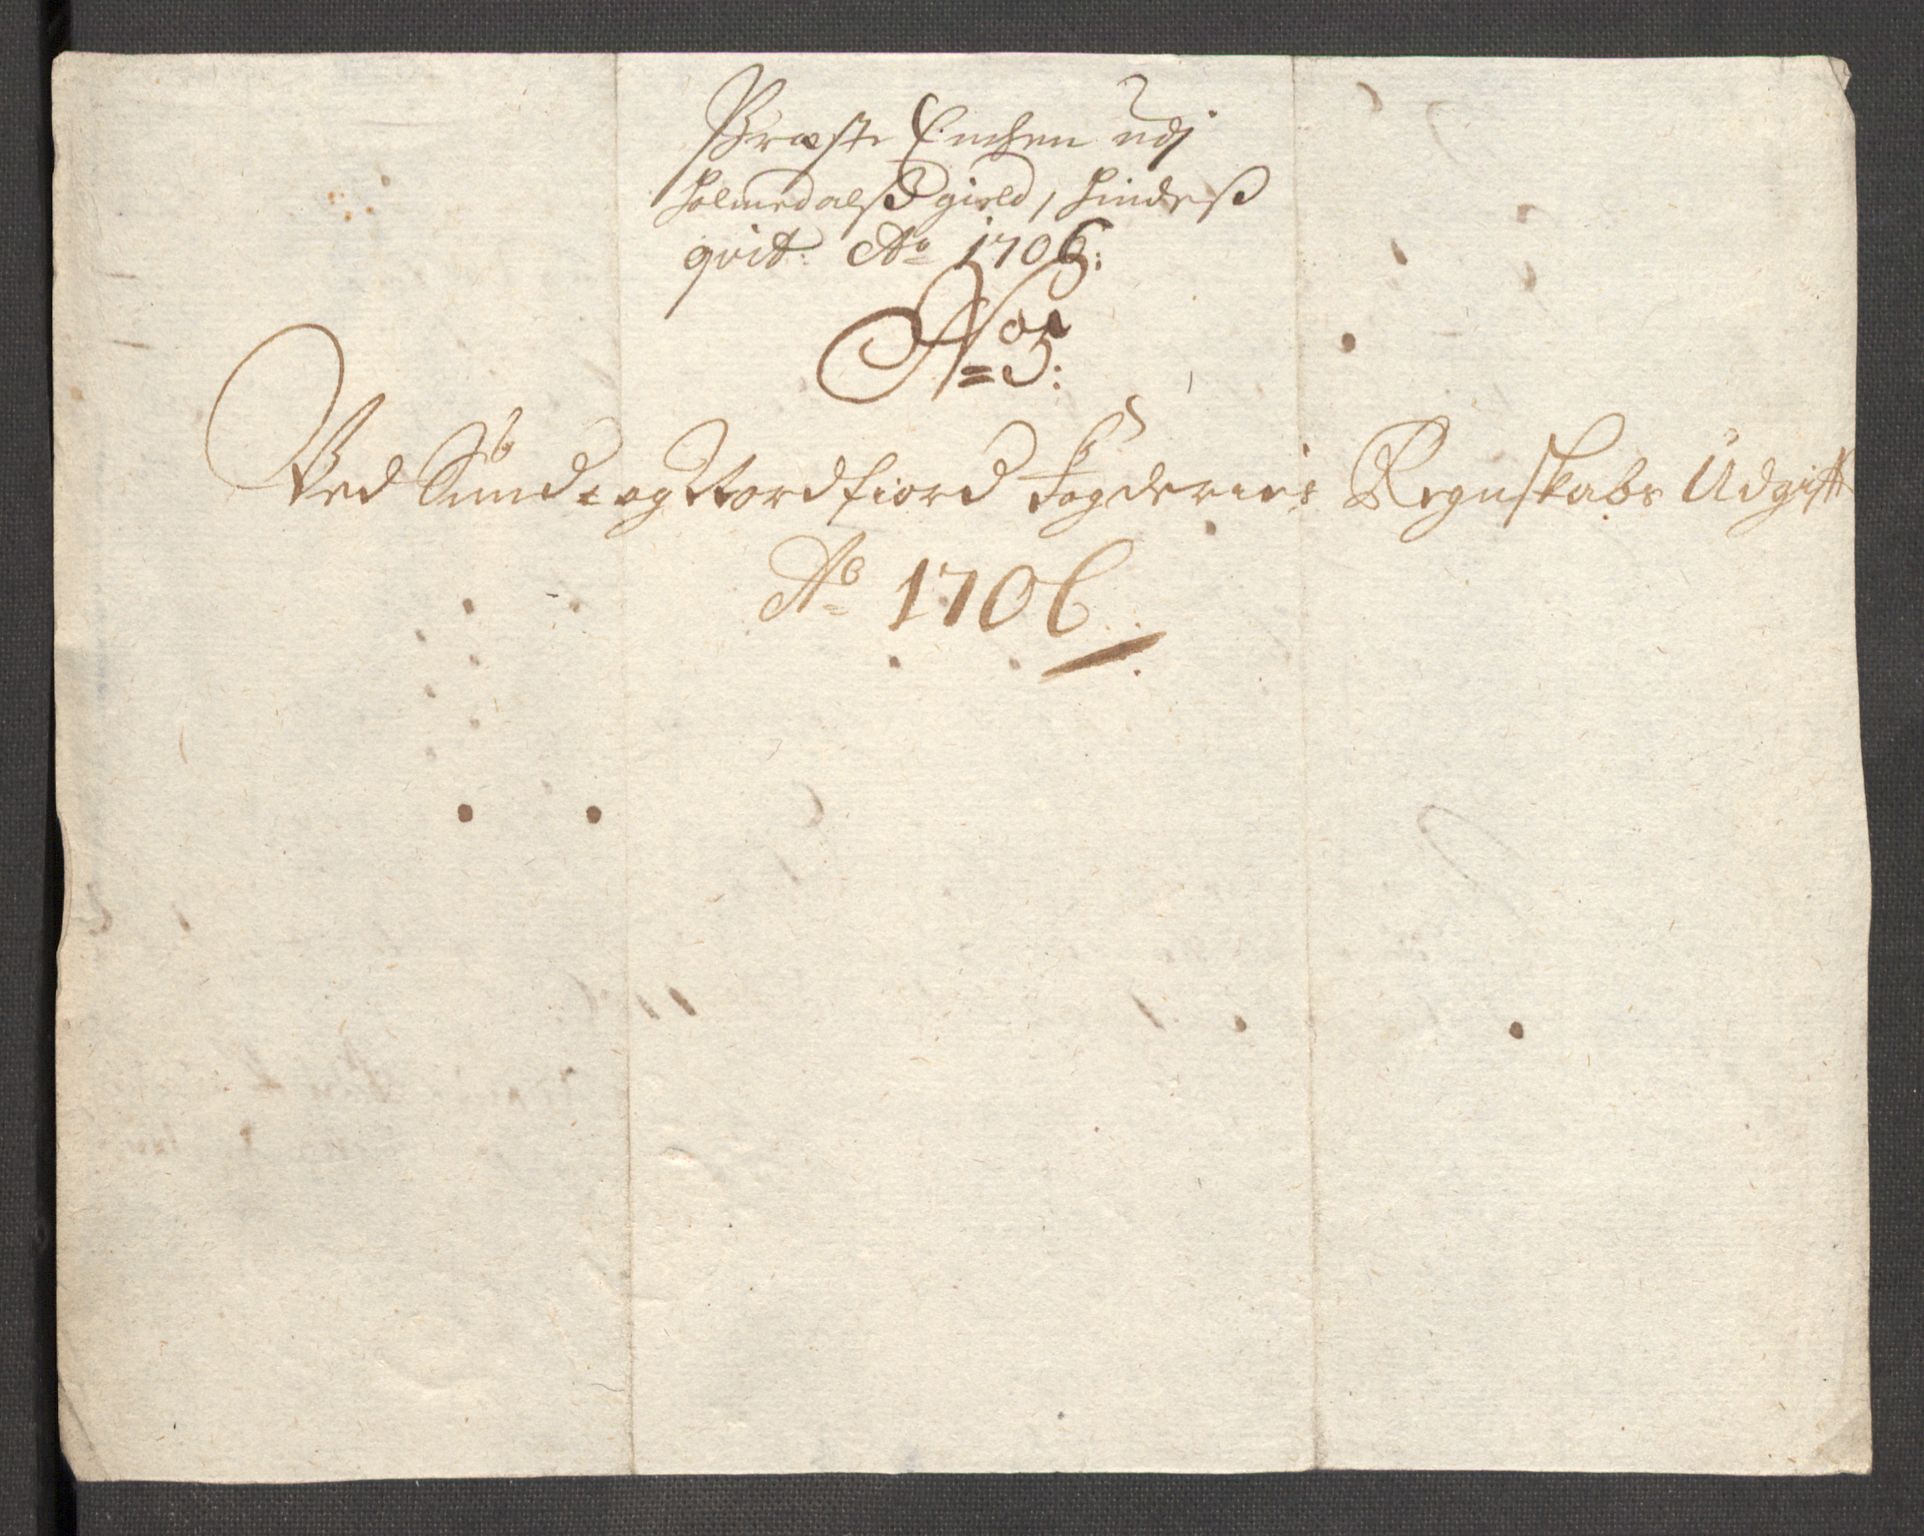 Præste Enchen udj
Holmedalss gield, hindess
qvit: Ao 1706:
No 5:
Ved Sund- og Nordfiord Fogderies Regnskabs Udgift
Ao 1706